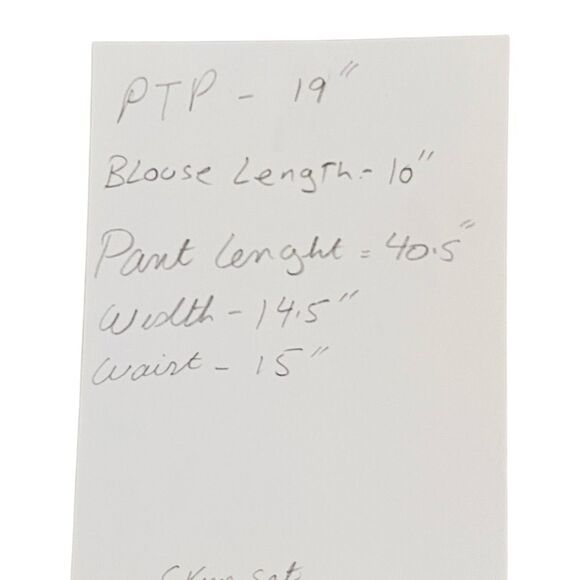 PTP - 19"
Blouse Length - 10"
Pant Lenght = 40.5"
Width - 14.5"
Waist - 15"